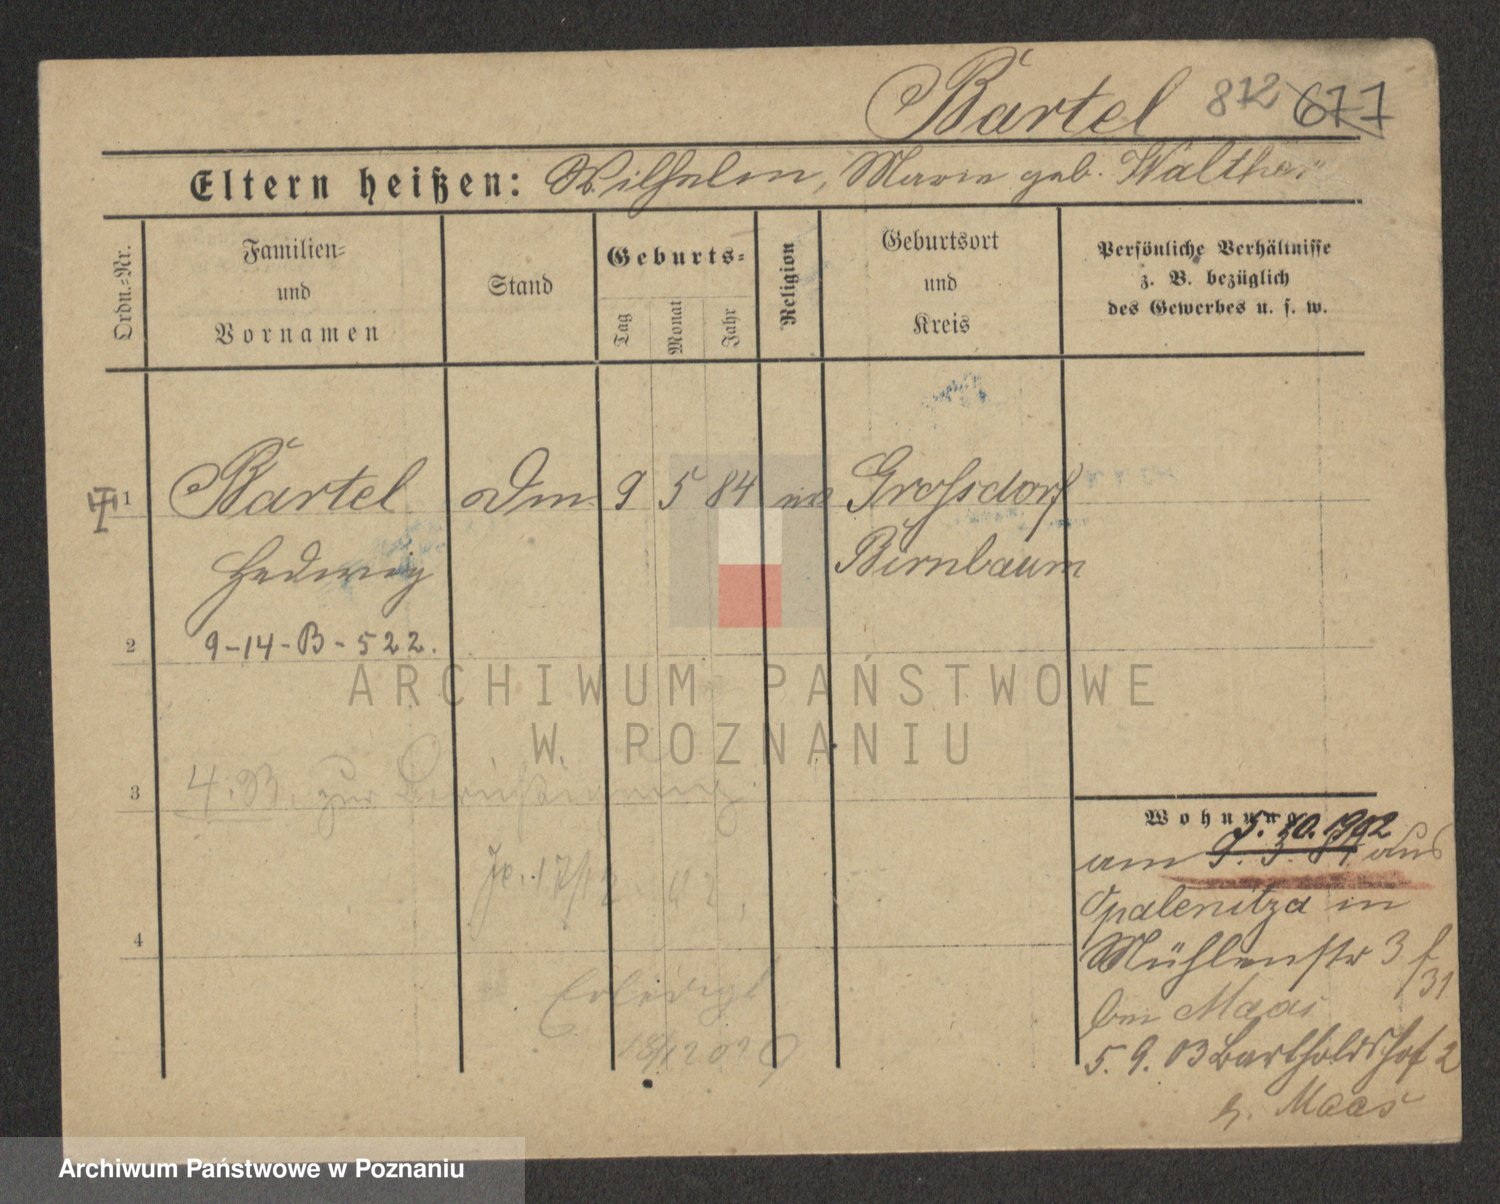 Bartel 872 677
Eltern heißen: Wilhelm, Marie geb. Walther
Ordn.-Nr.
Familien-
und
Vornamen
Stand
Geburts-
Tag
Monat
Jahr
Religion
Geburtsort
und
Kreis
Persönliche Verhältnisse
z. B. bezüglich
des Gewerbes u. s. w.
1 Bartel Dm 9 5 84 Grossdorf
Hedwig Birnbaum
2 9-14-B-522.
ARCHIWUM PAŃSTWOWE
W POZNANIU
3 4. B. zur Berichtigung
17/12 02.
4
Erledigt
18/12 02
Wohnung
5. 10. 1902
am aus
Opalenitza in
Mühlenstr 3
31
bei Maas
5. 9. 03 Bartholdshof 2
b. Maas
Archiwum Państwowe w Poznaniu